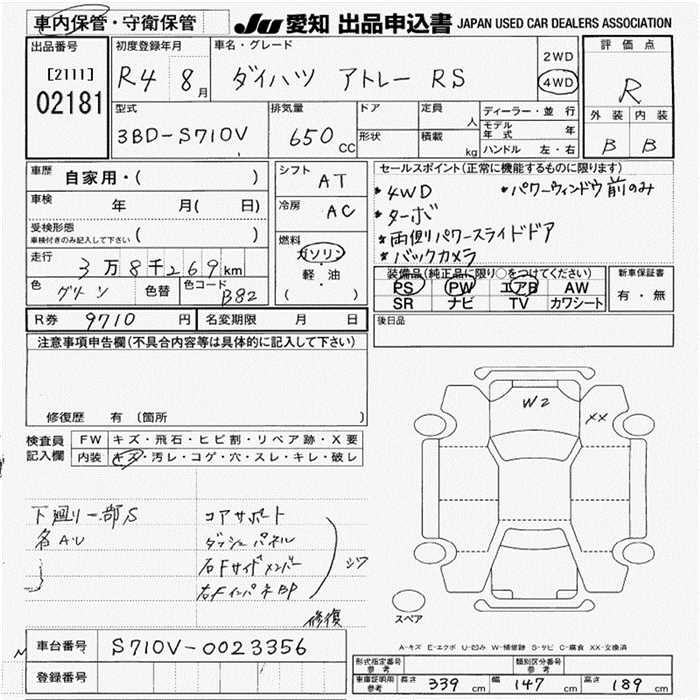 車内保管・守衛保管
JU 愛知 出品申込書 JAPAN USED CAR DEALERS ASSOCIATION
出品番号
[2111]
02181
初度登録年月
R4 8月
車名・グレード
ダイハツ アトレー RS
2WD
4WD
評価点
R
外装 内装
B B
型式
3BD-S710V
排気量
650 CC
ドア
形状
定員 人
積載 kg
ディーラー・並行
モデル年式 年
ハンドル 左・右
車歴 自家用・( )
車検 年 月( 日)
受検形態
車検付きのみ記入して下さい ( )
走行 3万8千269km
色 グリーン 色替 色コード B82
シフト AT
冷房 AC
燃料
ガソリン
軽・油
( )
セールスポイント(正常に機能するものに限ります)
*4WD *パワーウィンドウ前のみ
*ターボ
*両側パワースライドドア
*バックカメラ
装備品(純正品に限り○をつけてください)
PS PW エアB AW
SR ナビ TV カワシート
新車保証書
有・無
R券 9710円 名変期限 月 日
後日品
注意事項申告欄(不具合内容等は具体的に記入して下さい)
修復歴 有 〔箇所 〕
検査員記入欄
FW キズ・飛石・ヒビ割・リペア跡・X要
内装 キズ・汚レ・コゲ・穴・スレ・キレ・破レ
W2
XX
下廻り一部S
各AU
コアサポート
ダッシュパネル
右Fサイドメンバー
右Fインパネ BP
シワ
修復
スペア
A-キズ E-エクボ U-凹み W-補修跡 S-サビ C-腐食 XX-交換済
車台番号 S710V-0023356
登録番号
形式指定番号 参考
類別区分番号 参考
車庫証明用 参考 長さ 339cm 幅 147cm 高さ 189cm